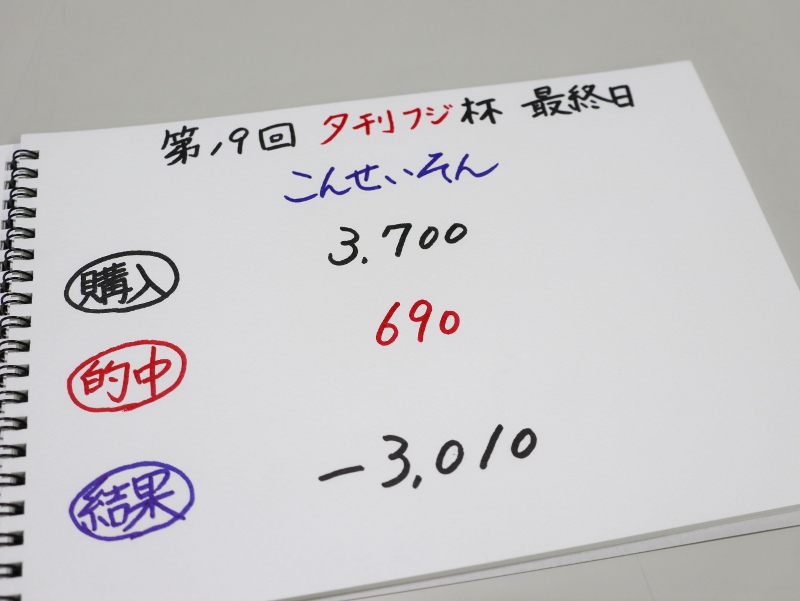 第19回 夕刊フジ杯 最終日
こんせいそん
購入 3.700
的中 690
結果 -3,010